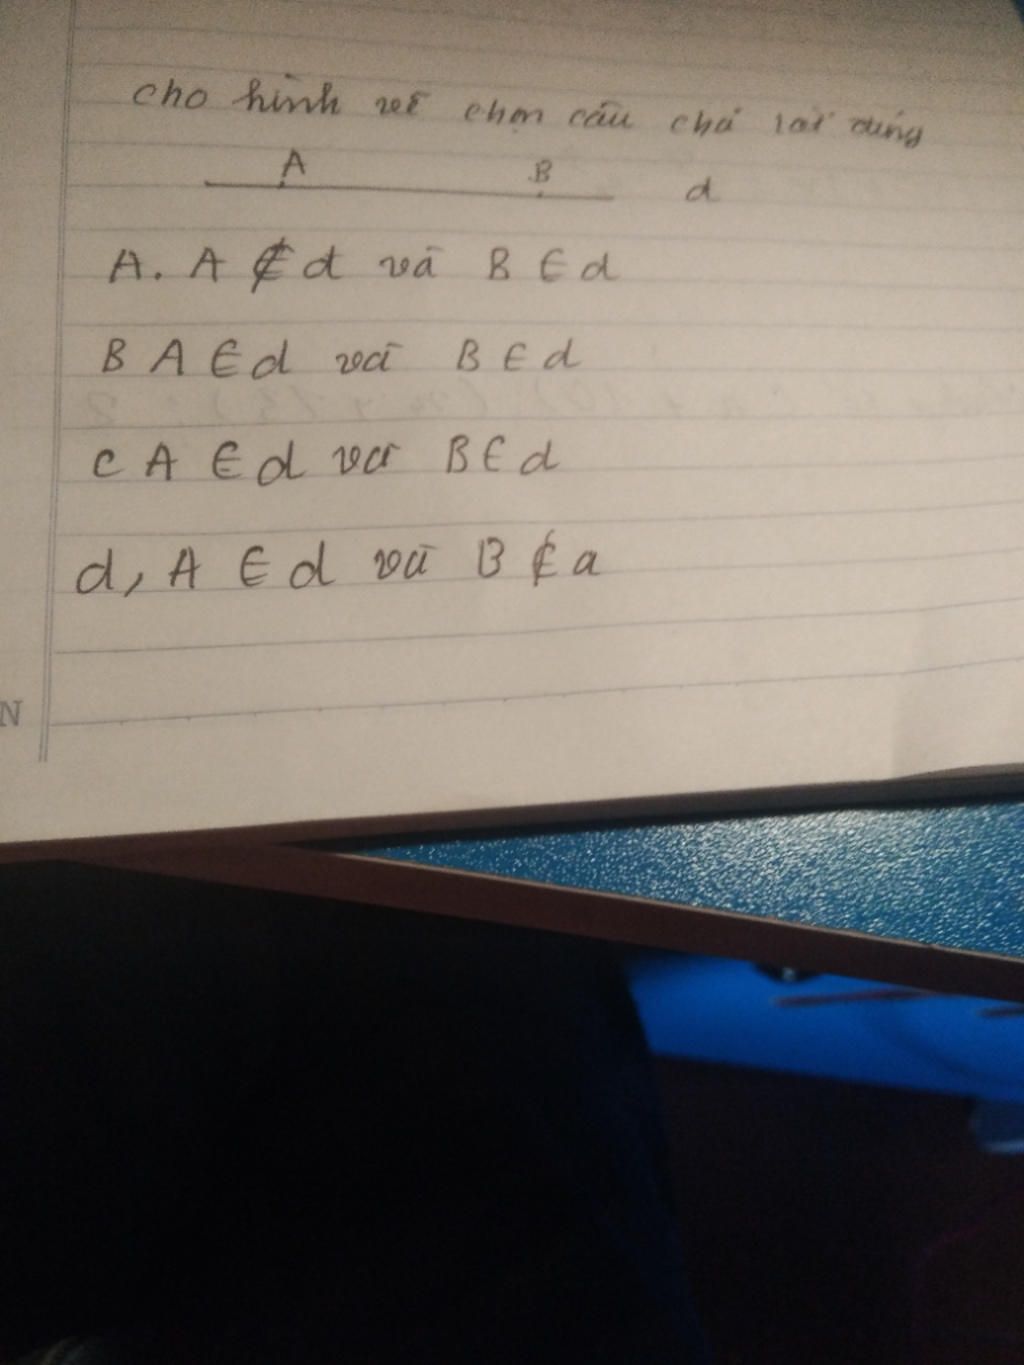 cho hình vẽ chọn câu chả lời đúng
A B d
A. A ∉ d và B ∈ d
B A ∈ d và B ∈ d
C A ∈ d và B ∈ d
d, A ∈ d và B ∉ a
N